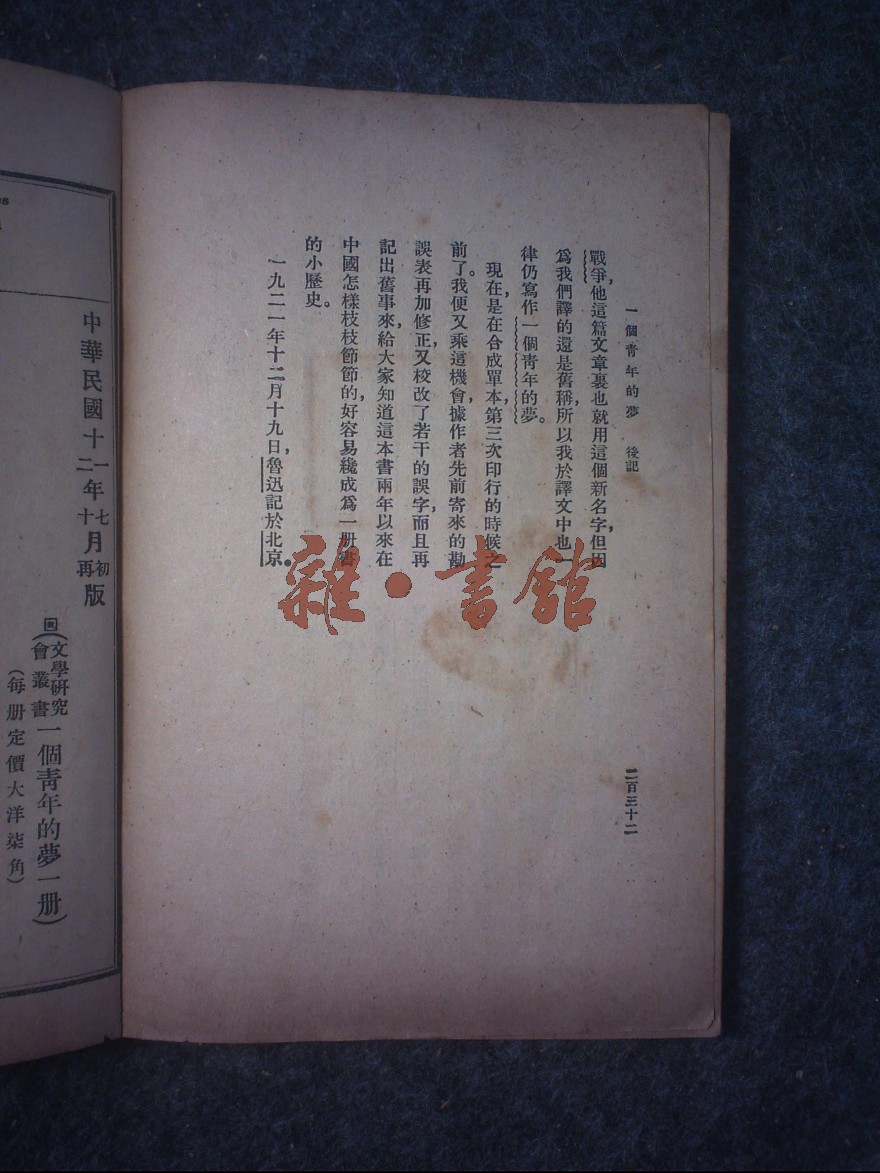 一個靑年的夢　後記
戰爭，他這篇文章裏也就用這個新名字，但因
爲我們譯的還是舊稱，所以我於譯文中也一
律仍寫作一個靑年的夢。
現在，是在合成單本，第三次印行的時候之
前了。我便又乘這機會，據作者先前寄來的勘
誤表再加修正，又校改了若干的誤字，而且再
記出舊事來，給大家知道這本書兩年以來在
中國怎樣枝枝節節的，好容易纔成爲一册書
的小歷史。
一九二一年十二月十九日，魯迅記於北京。
二百三十二
中華民國十一年七月初版
二年十月再版
(文學研究會叢書一個靑年的夢一册)
(每册定價大洋柒角)
雜·書館